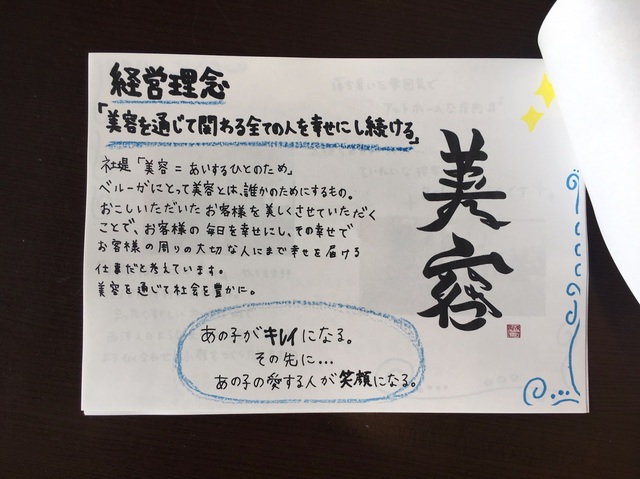 経営理念
「美容を通じて関わる全ての人を幸せにし続ける」
社堤「美容=あいするひとのため」
ベルーガにとって美容とは、誰かのためにするもの。
おこしいただいたお客様を美しくさせていただく
ことで、お客様の毎日を幸せにし、その幸せで
お客様の周りの大切な人にまで幸せを届ける
仕事だと考えています。
美容を通じて社会を豊かに。
あの子がキレイになる。
その先に...
あの子の愛する人が笑顔になる。
美容